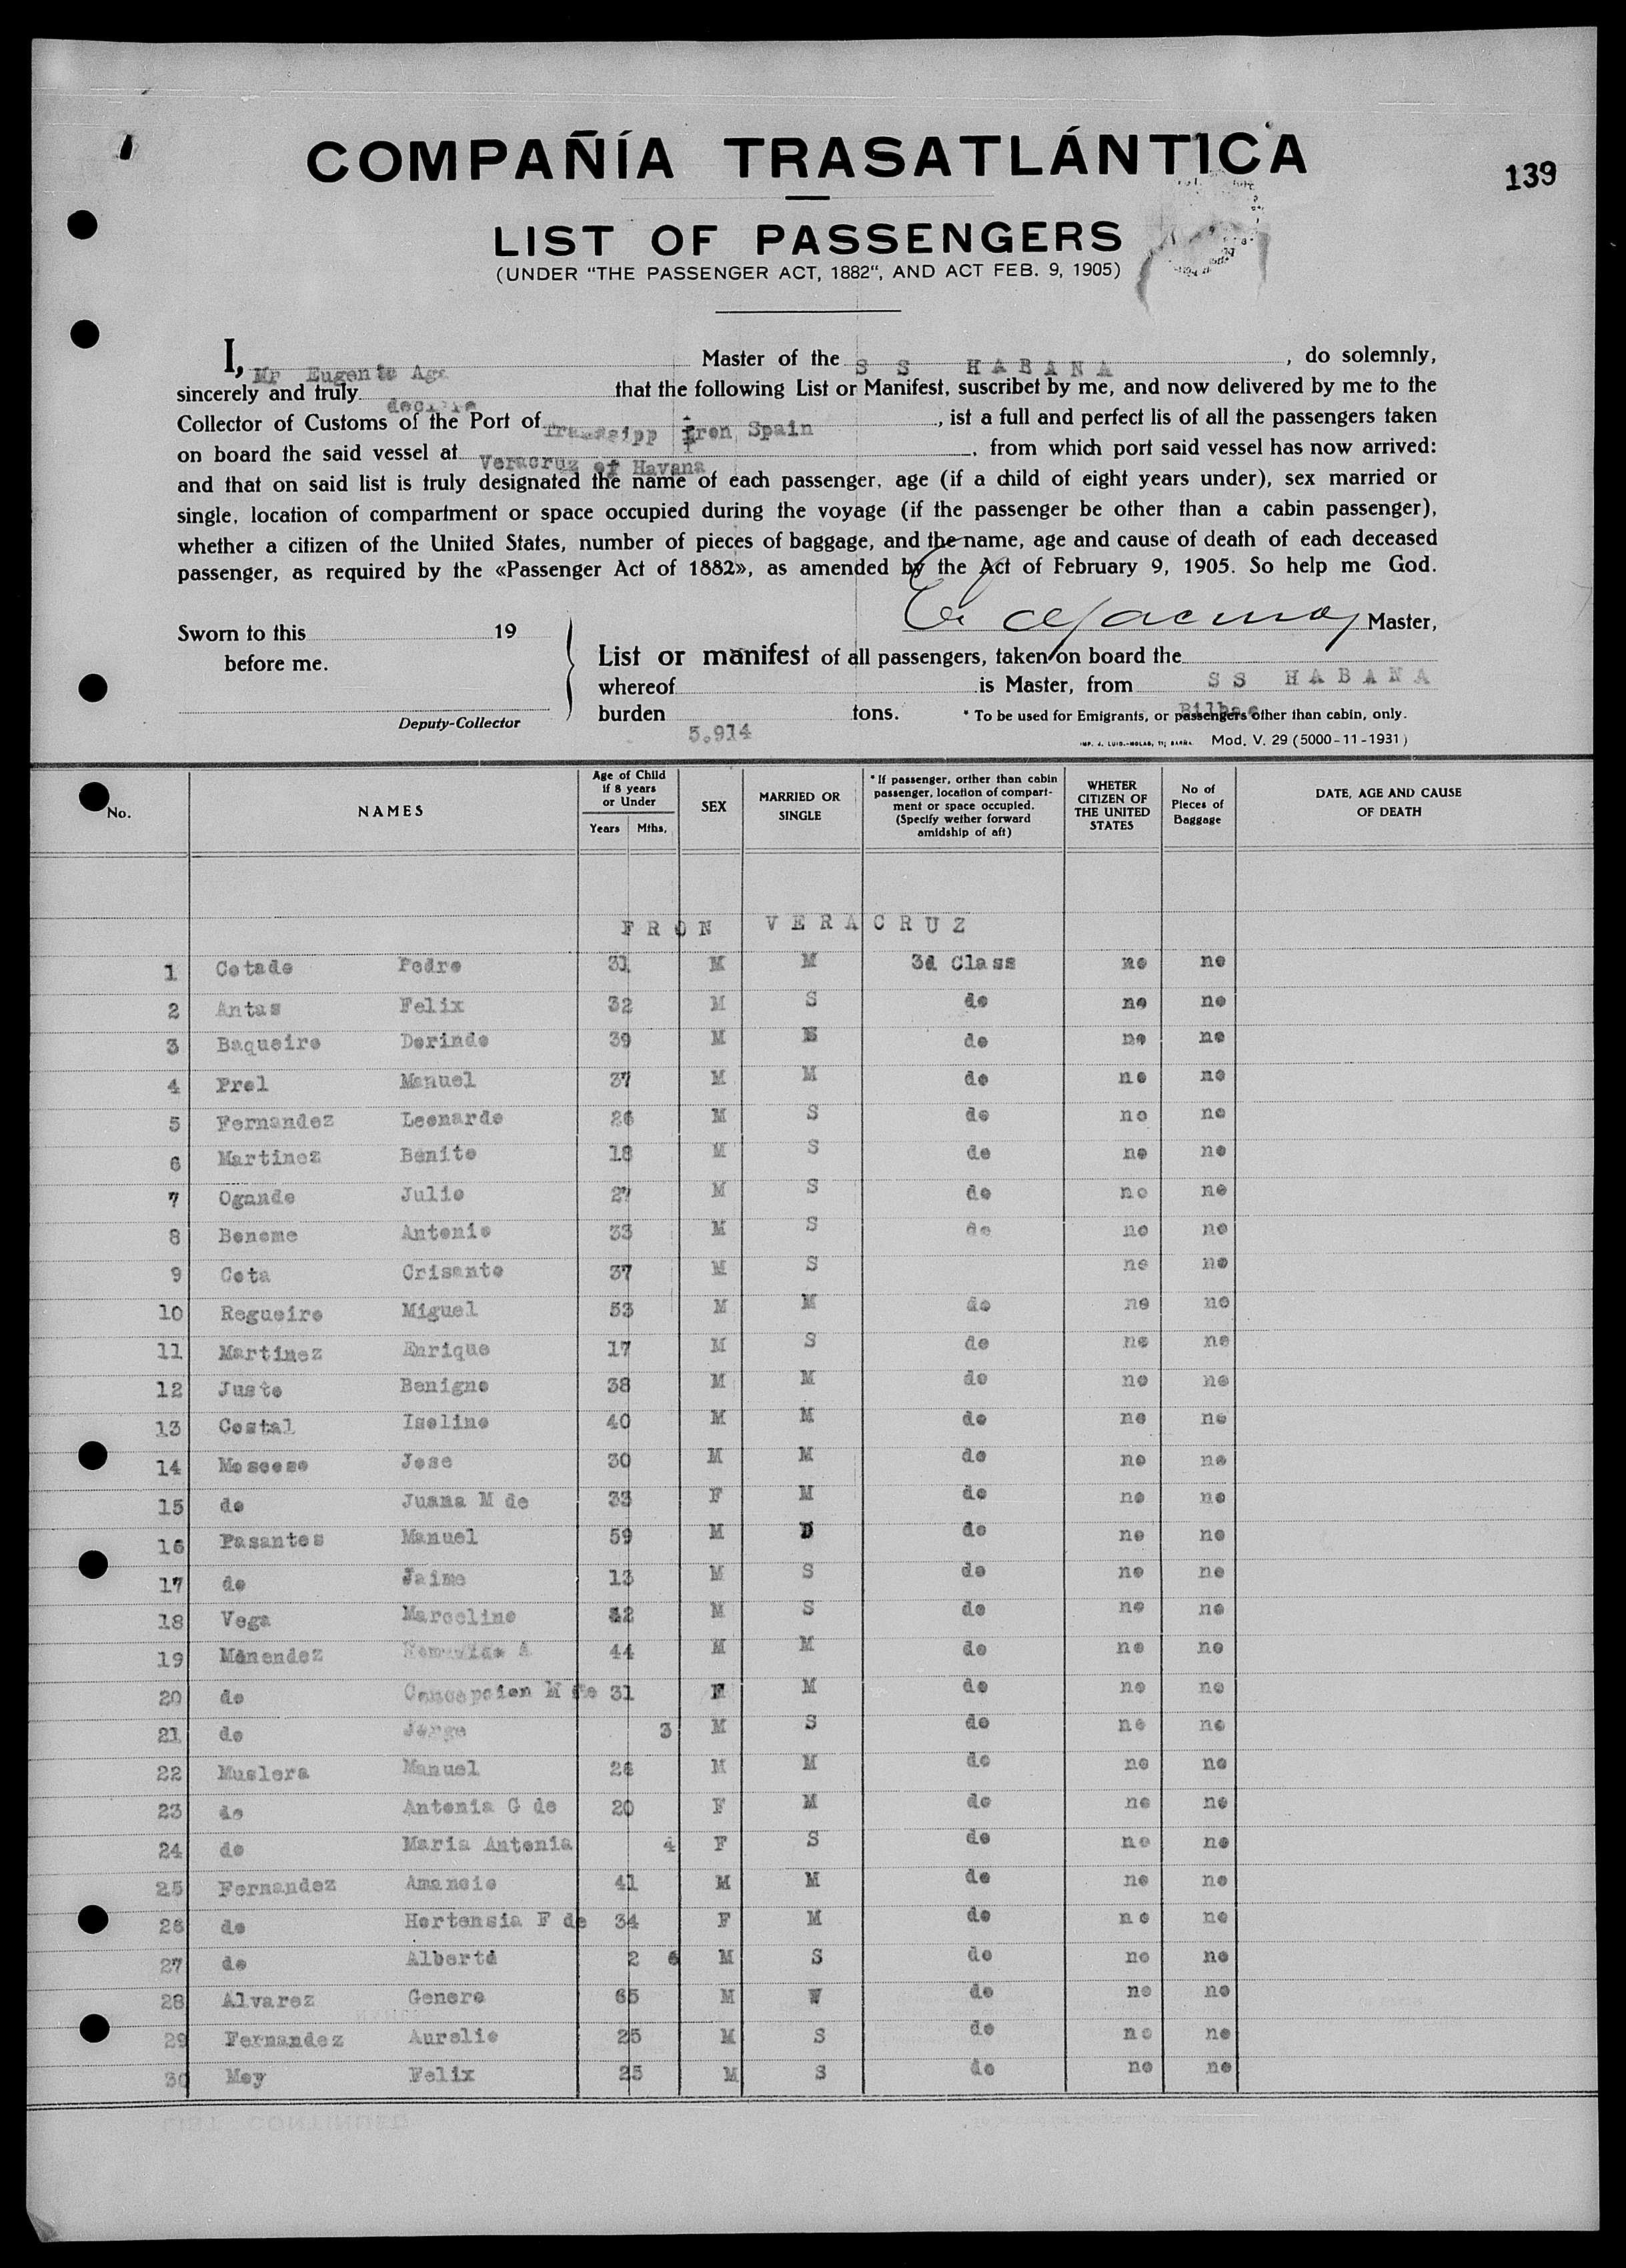 COMPAÑÍA TRASATLÁNTICA
139
LIST OF PASSENGERS
(UNDER "THE PASSENGER ACT, 1882", AND ACT FEB. 9, 1905)
I, Mr Eugenio Master of the S S HABANA, do solemnly,
sincerely and truly declare that the following List or Manifest, suscribet by me, and now delivered by me to the
Collector of Customs of the Port of Spain, ist a full and perfect lis of all the passengers taken
on board the said vessel at Veracruz of Havana, from which port said vessel has now arrived:
and that on said list is truly designated the name of each passenger, age (if a child of eight years under), sex married or
single, location of compartment or space occupied during the voyage (if the passenger be other than a cabin passenger),
whether a citizen of the United States, number of pieces of baggage, and the name, age and cause of death of each deceased
passenger, as required by the «Passenger Act of 1882», as amended by the Act of February 9, 1905. So help me God.
Master,
Sworn to this 19
before me.
Deputy-Collector
List or manifest of all passengers, taken on board the
whereof is Master, from SS HABANA
burden 5.914 tons. Bilbao
* To be used for Emigrants, or passengers other than cabin, only.
Mod. V. 29 (5000-11-1931)
No. NAMES Age of Child if 8 years or Under Years Mths. SEX MARRIED OR SINGLE * If passenger, orther than cabin passenger, location of compartment or space occupied. (Specify wether forward amidship of aft) WHETER CITIZEN OF THE UNITED STATES No of Pieces of Baggage DATE, AGE AND CAUSE OF DEATH
FRON VERACRUZ
1 Cotado Pedro 31 M M 3d Class no no
2 Antas Felix 32 M S do no no
3 Baqueiro Dorindo 39 M do no no
4 Prol Manuel 37 M M do no no
5 Fernandez Leonardo 26 M S do no no
6 Martinez Benito 18 M S do no no
7 Ogando Julio 27 M S do no no
8 Bonome Antonio 33 M S do no no
9 Cota Crisanto 37 M S no no
10 Regueiro Miguel 53 M M do no no
11 Martinez Enrique 17 M S do no no
12 Justo Benigno 38 M M do no no
13 Costal Isolino 40 M M do no no
14 Moscoso Jose 30 M M do no no
15 do Juana M de 33 F M do no no
16 Pasantes Manuel 59 M D do no no
17 do Jaime 13 M S do no no
18 Vega Marcelino 42 M S do no no
19 Menendez A 44 M M do no no
20 do Concepcion M de 31 F M do no no
21 do Jorge 3 M S do no no
22 Muslera Manuel 26 M M do no no
23 do Antonia G de 20 F M do no no
24 do Maria Antonia 4 F S do no no
25 Fernandez Amancio 41 M M do no no
26 do Hortensia F de 34 F M do no no
27 do Alberto 2 6 M S do no no
28 Alvarez Genoro 65 M W do no no
29 Fernandez Aurelio 25 M S do no no
30 Moy Felix 25 M S do no no